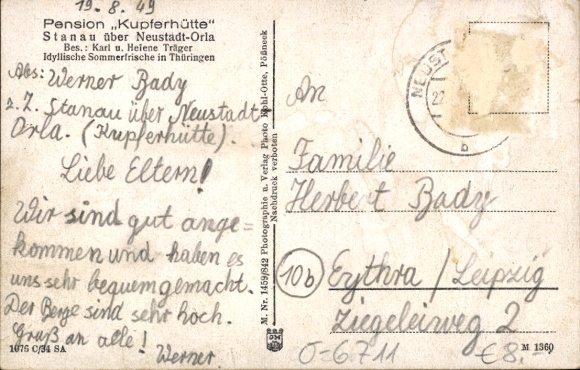 19.8.49
Pension „Kupferhütte“
Stanau über Neustadt-Orla
Bes.: Karl u. Helene Träger
Idyllische Sommerfrische in Thüringen
Abs: Werner Bady
z. Z. Stanau über Neustadt
Orla. (Kupferhütte).
Liebe Eltern!
Wir sind gut ange=
kommen und haben es
uns sehr bequem gemacht.
Der Berge sind sehr hoch.
Gruß an alle!
Werner.
1076 C/34 SA
M. Nr. 1459/842 Photographie u. Verlag Photo Kohl-Otte, Pößneck
Nachdruck verboten
NEUST
22
b
An
Familie
Herbert Bady
10b Erythra / Leipzig
Ziegeleiweg 2
O=6711
€8,-
M 1360